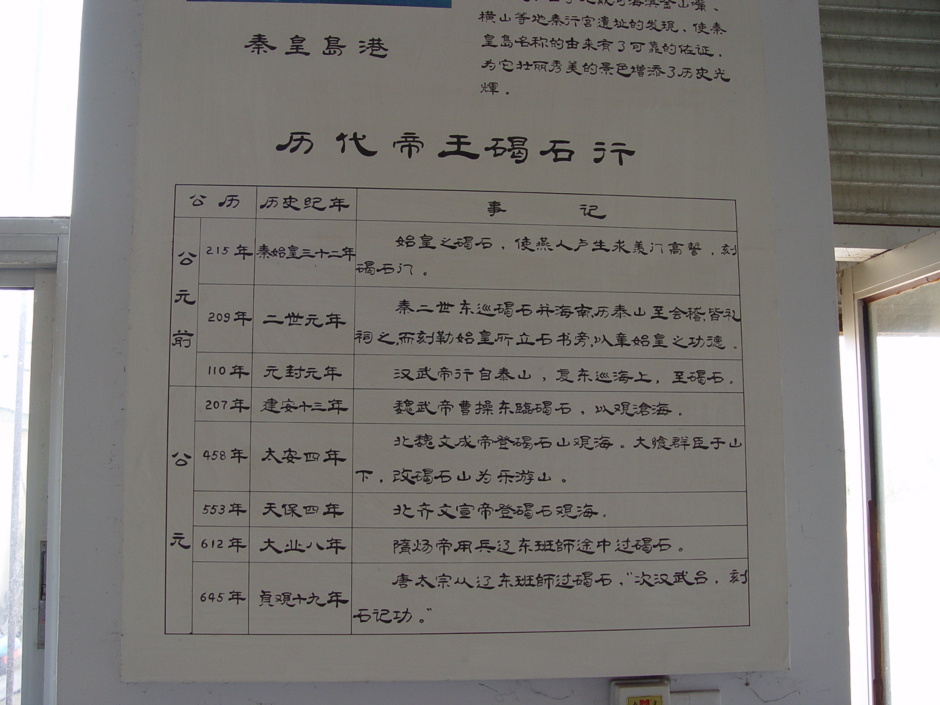 秦皇島港
横山等地秦行宫遺址的发现，使秦
皇島名称的由来有了可靠的佐证，
为它壮丽秀美的景色增添了历史光
輝。
历代帝王碣石行
公历 历史纪年 事记
公元前
215年 秦始皇三十二年 始皇之碣石，使燕人卢生求羡门高誓，刻
碣石门。
209年 二世元年 秦二世东巡碣石并海南，历泰山至会稽，皆礼
祠之，而刻勒始皇所立石书旁，以章始皇之功德。
110年 元封元年 汉武帝行自泰山，复东巡海上，至碣石。
公元
207年 建安十三年 魏武帝曹操东臨碣石，以观滄海。
458年 太安四年 北魏文成帝登碣石山观海。大飨群臣于山
下，改碣石山为乐游山。
553年 天保四年 北齐文宣帝登碣石观海。
612年 大业八年 隋炀帝用兵辽东班師途中过碣石。
645年 貞观十九年 唐太宗从辽东班師过碣石，“次汉武台，刻
石记功。”